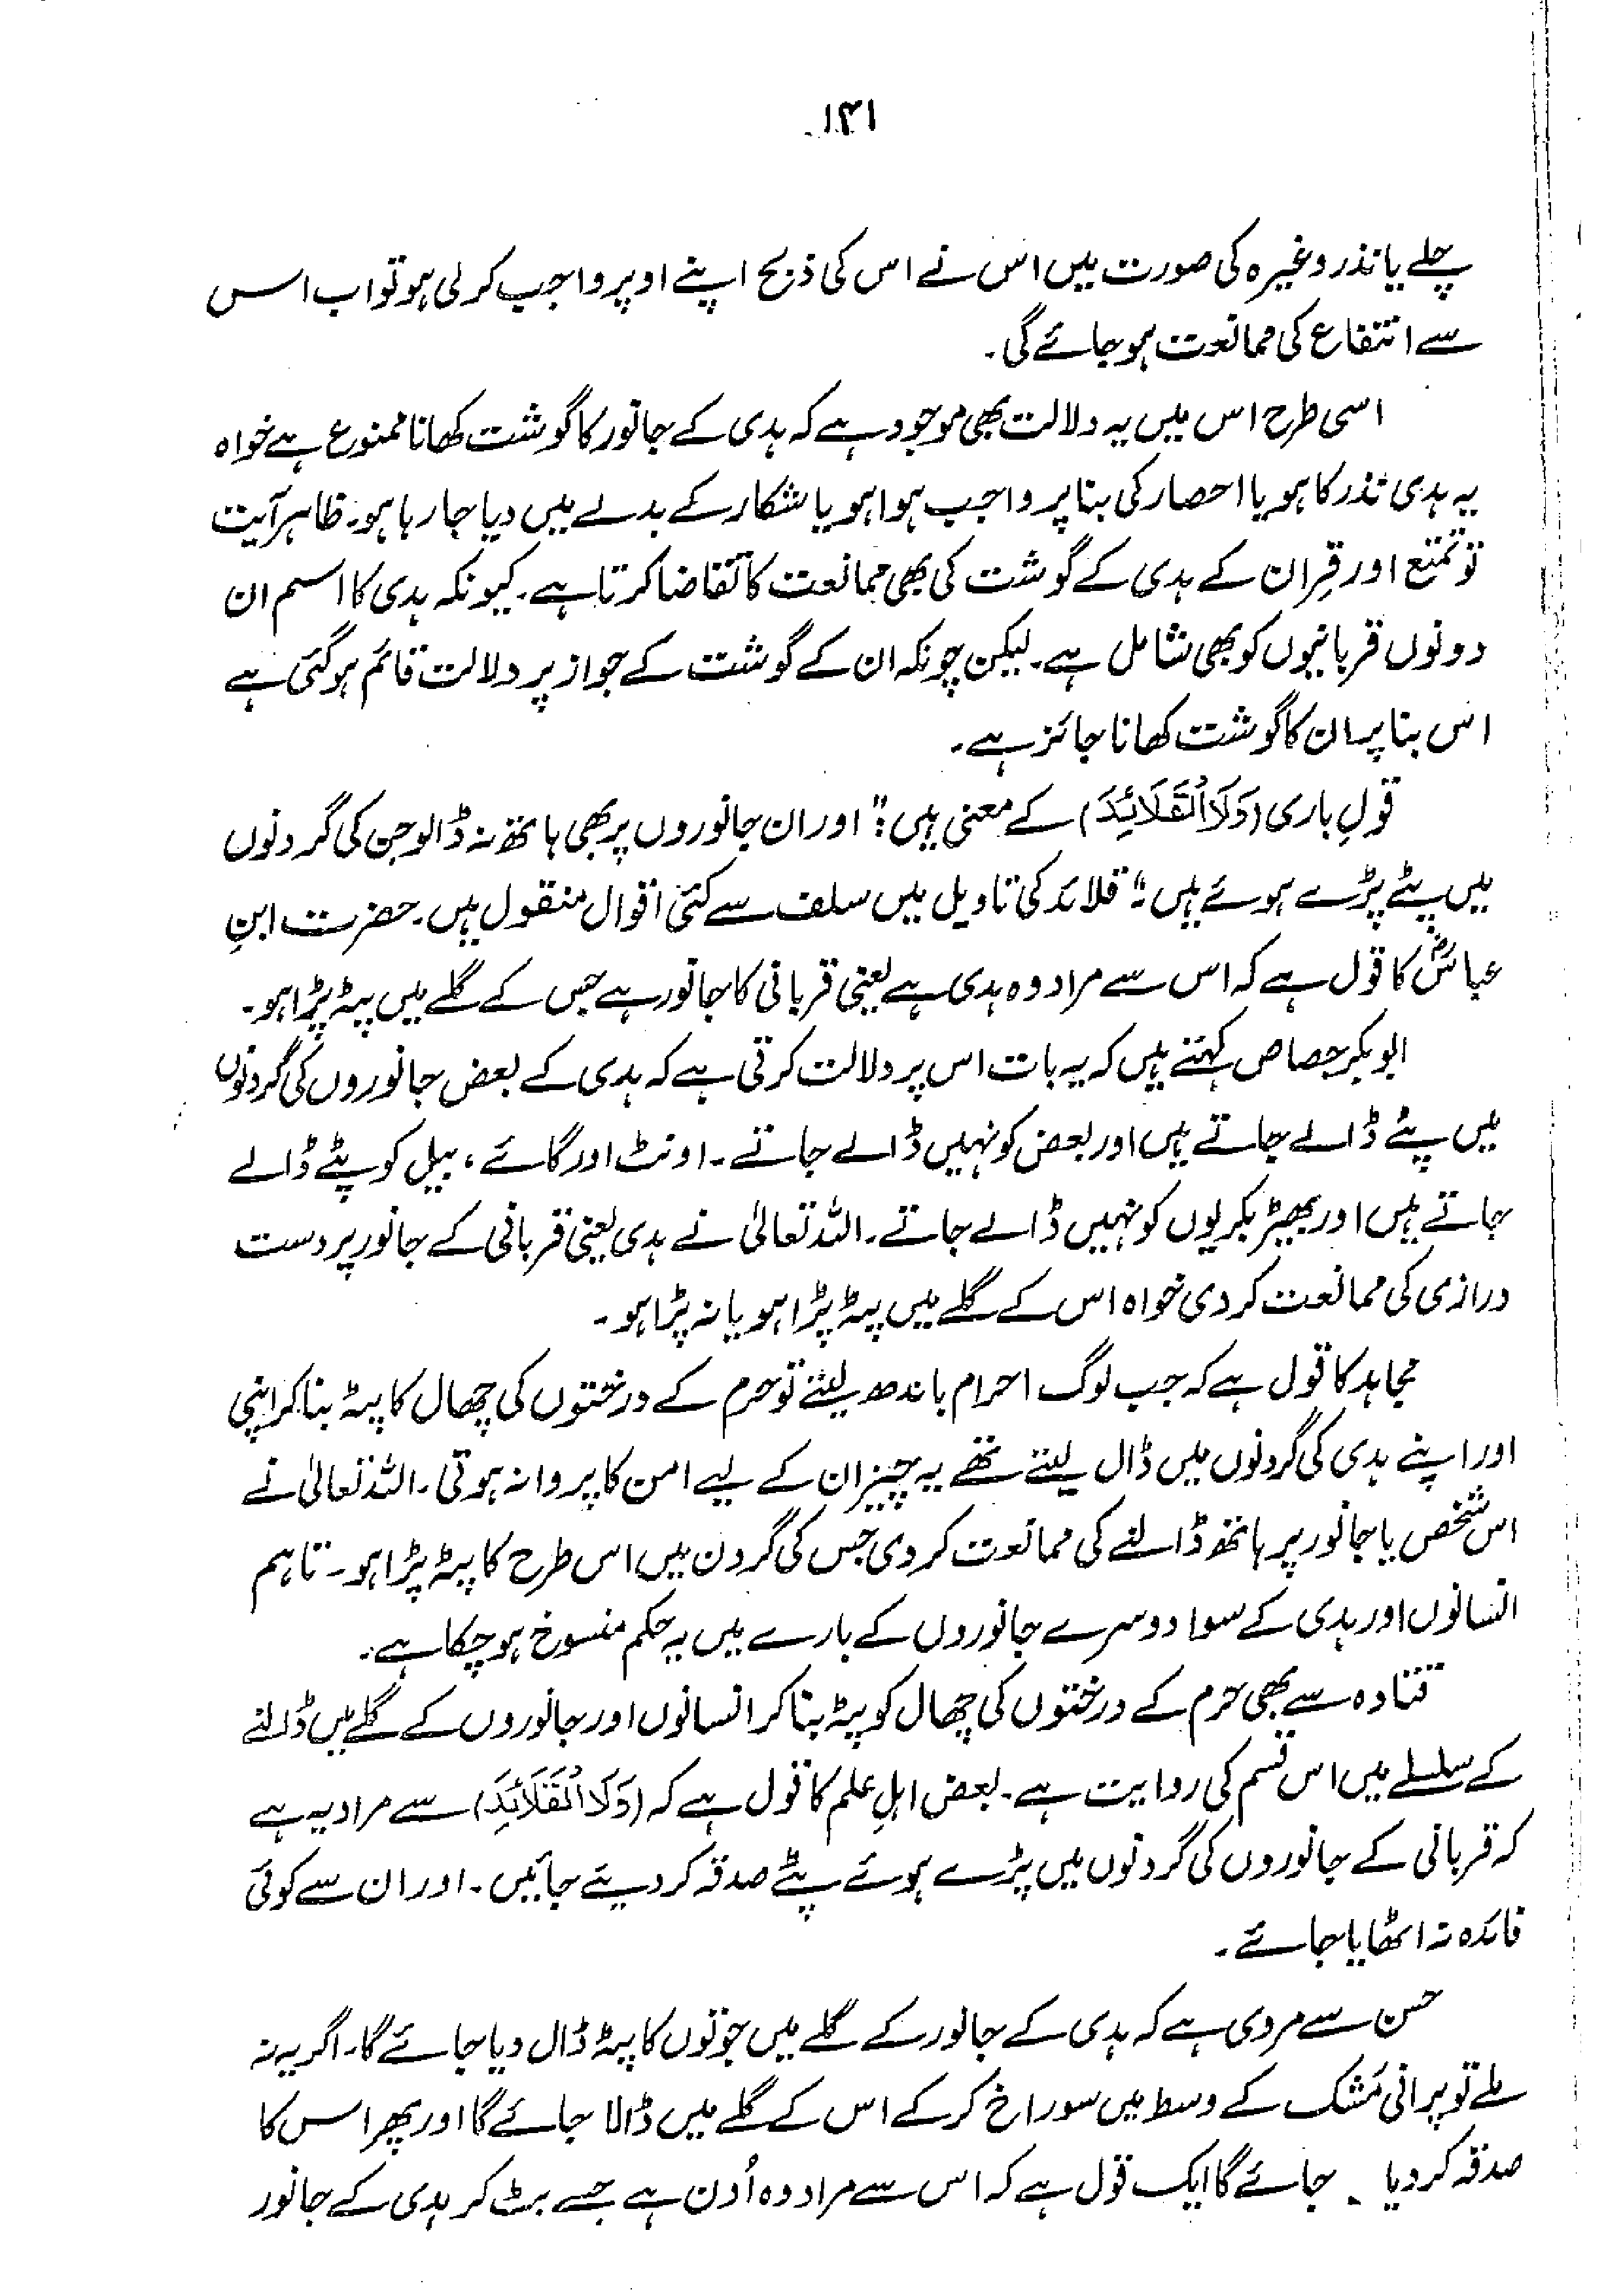 ۱۳۱
چلے یا نذر وغیرہ کی صورت میں اس نے اس کی ذبح اپنے اوپر واجب کر لی ہو تو اب اس
سے انتفاع کی ممانعت ہو جائے گی۔
اسی طرح اس میں یہ دلالت بھی موجود ہے کہ ہدی کے جانور کا گوشت کھانا ممنوع ہے خواہ
یہ ہدی نذر کا ہو یا احصار کی بنا پر واجب ہوا ہو یا شکار کے بدلے میں دیا جا رہا ہو۔ ظاہر آیت
تو تمتع اور قِران کے ہدی کے گوشت کی بھی ممانعت کا تقاضا کرتا ہے۔ کیونکہ ہدی کا اسم ان
دونوں قربانیوں کو بھی شامل ہے۔ لیکن چونکہ ان کے گوشت کے جواز پر دلالت قائم ہو گئی ہے
اس بنا پر ان کا گوشت کھانا جائز ہے۔
قولِ باری (وَلَا الْقَلَائِدَ) کے معنی ہیں: "اور ان جانوروں پر بھی ہاتھ نہ ڈالو جن کی گردنوں
میں پٹے پڑے ہوئے ہیں" قلائد کی تاویل میں سلف سے کئی اقوال منقول ہیں۔ حضرت ابنِ
عباسؓ کا قول ہے کہ اس سے مراد وہ ہدی ہے یعنی قربانی کا جانور ہے جس کے گلے میں پٹہ پڑا ہو۔
ابوبکر جصاص کہتے ہیں کہ یہ بات اس پر دلالت کرتی ہے کہ ہدی کے بعض جانوروں کی گردنوں
میں پٹے ڈالے جاتے ہیں اور بعض کو نہیں ڈالے جاتے۔ اونٹ اور گائے، بیل کو پٹے ڈالے
جاتے ہیں اور بھیڑ بکریوں کو نہیں ڈالے جاتے۔ اللہ تعالیٰ نے ہدی یعنی قربانی کے جانور پر دست
درازی کی ممانعت کر دی خواہ اس کے گلے میں پٹہ پڑا ہو یا نہ پڑا ہو۔
مجاہد کا قول ہے کہ جب لوگ احرام باندھ لیتے تو حرم کے درختوں کی چھال کا پٹہ بنا کر اپنی
اور اپنے ہدی کی گردنوں میں ڈال لیتے تھے یہ چیز ان کے لیے امن کا پروانہ ہوتی۔ اللہ تعالیٰ نے
اس شخص یا جانور پر ہاتھ ڈالنے کی ممانعت کر دی جس کی گردن میں اس طرح کا پٹہ پڑا ہو۔ تاہم
انسانوں اور ہدی کے سوا دوسرے جانوروں کے بارے میں یہ حکم منسوخ ہو چکا ہے۔
قتادہ سے بھی حرم کے درختوں کی چھال کو پٹہ بنا کر انسانوں اور جانوروں کے گلے میں ڈالنے
کے سلسلے میں اس قسم کی روایت ہے۔ بعض اہلِ علم کا قول ہے کہ (وَلَا الْقَلَائِدَ) سے مراد یہ ہے
کہ قربانی کے جانوروں کی گردنوں میں پڑے ہوئے پٹے صدقہ کر دیئے جائیں۔ اور ان سے کوئی
فائدہ نہ اٹھایا جائے۔
حسن سے مروی ہے کہ ہدی کے جانور کے گلے میں جوتوں کا پٹہ ڈال دیا جائے گا۔ اگر یہ نہ
ملے تو پرانی مَشک کے وسط میں سوراخ کر کے اس کے گلے میں ڈالا جائے گا اور پھر اس کا
صدقہ کر دیا جائے گا ایک قول ہے کہ اس سے مراد وہ اُون ہے جسے بٹ کر ہدی کے جانور